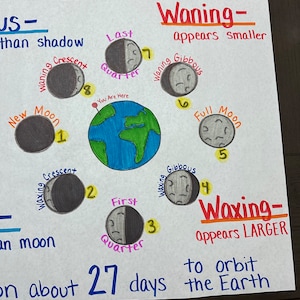 us-
than shadow
Waning-
appears smaller
Last
Quarter
7
Waning Crescent
8
Waning Gibbous
6
You Are Here
New Moon
1
Full Moon
5
Waxing Crescent
2
Waxing Gibbous
4
First
Quarter
3
Waxing-
appears LARGER
an moon
on about 27 days to orbit
the Earth